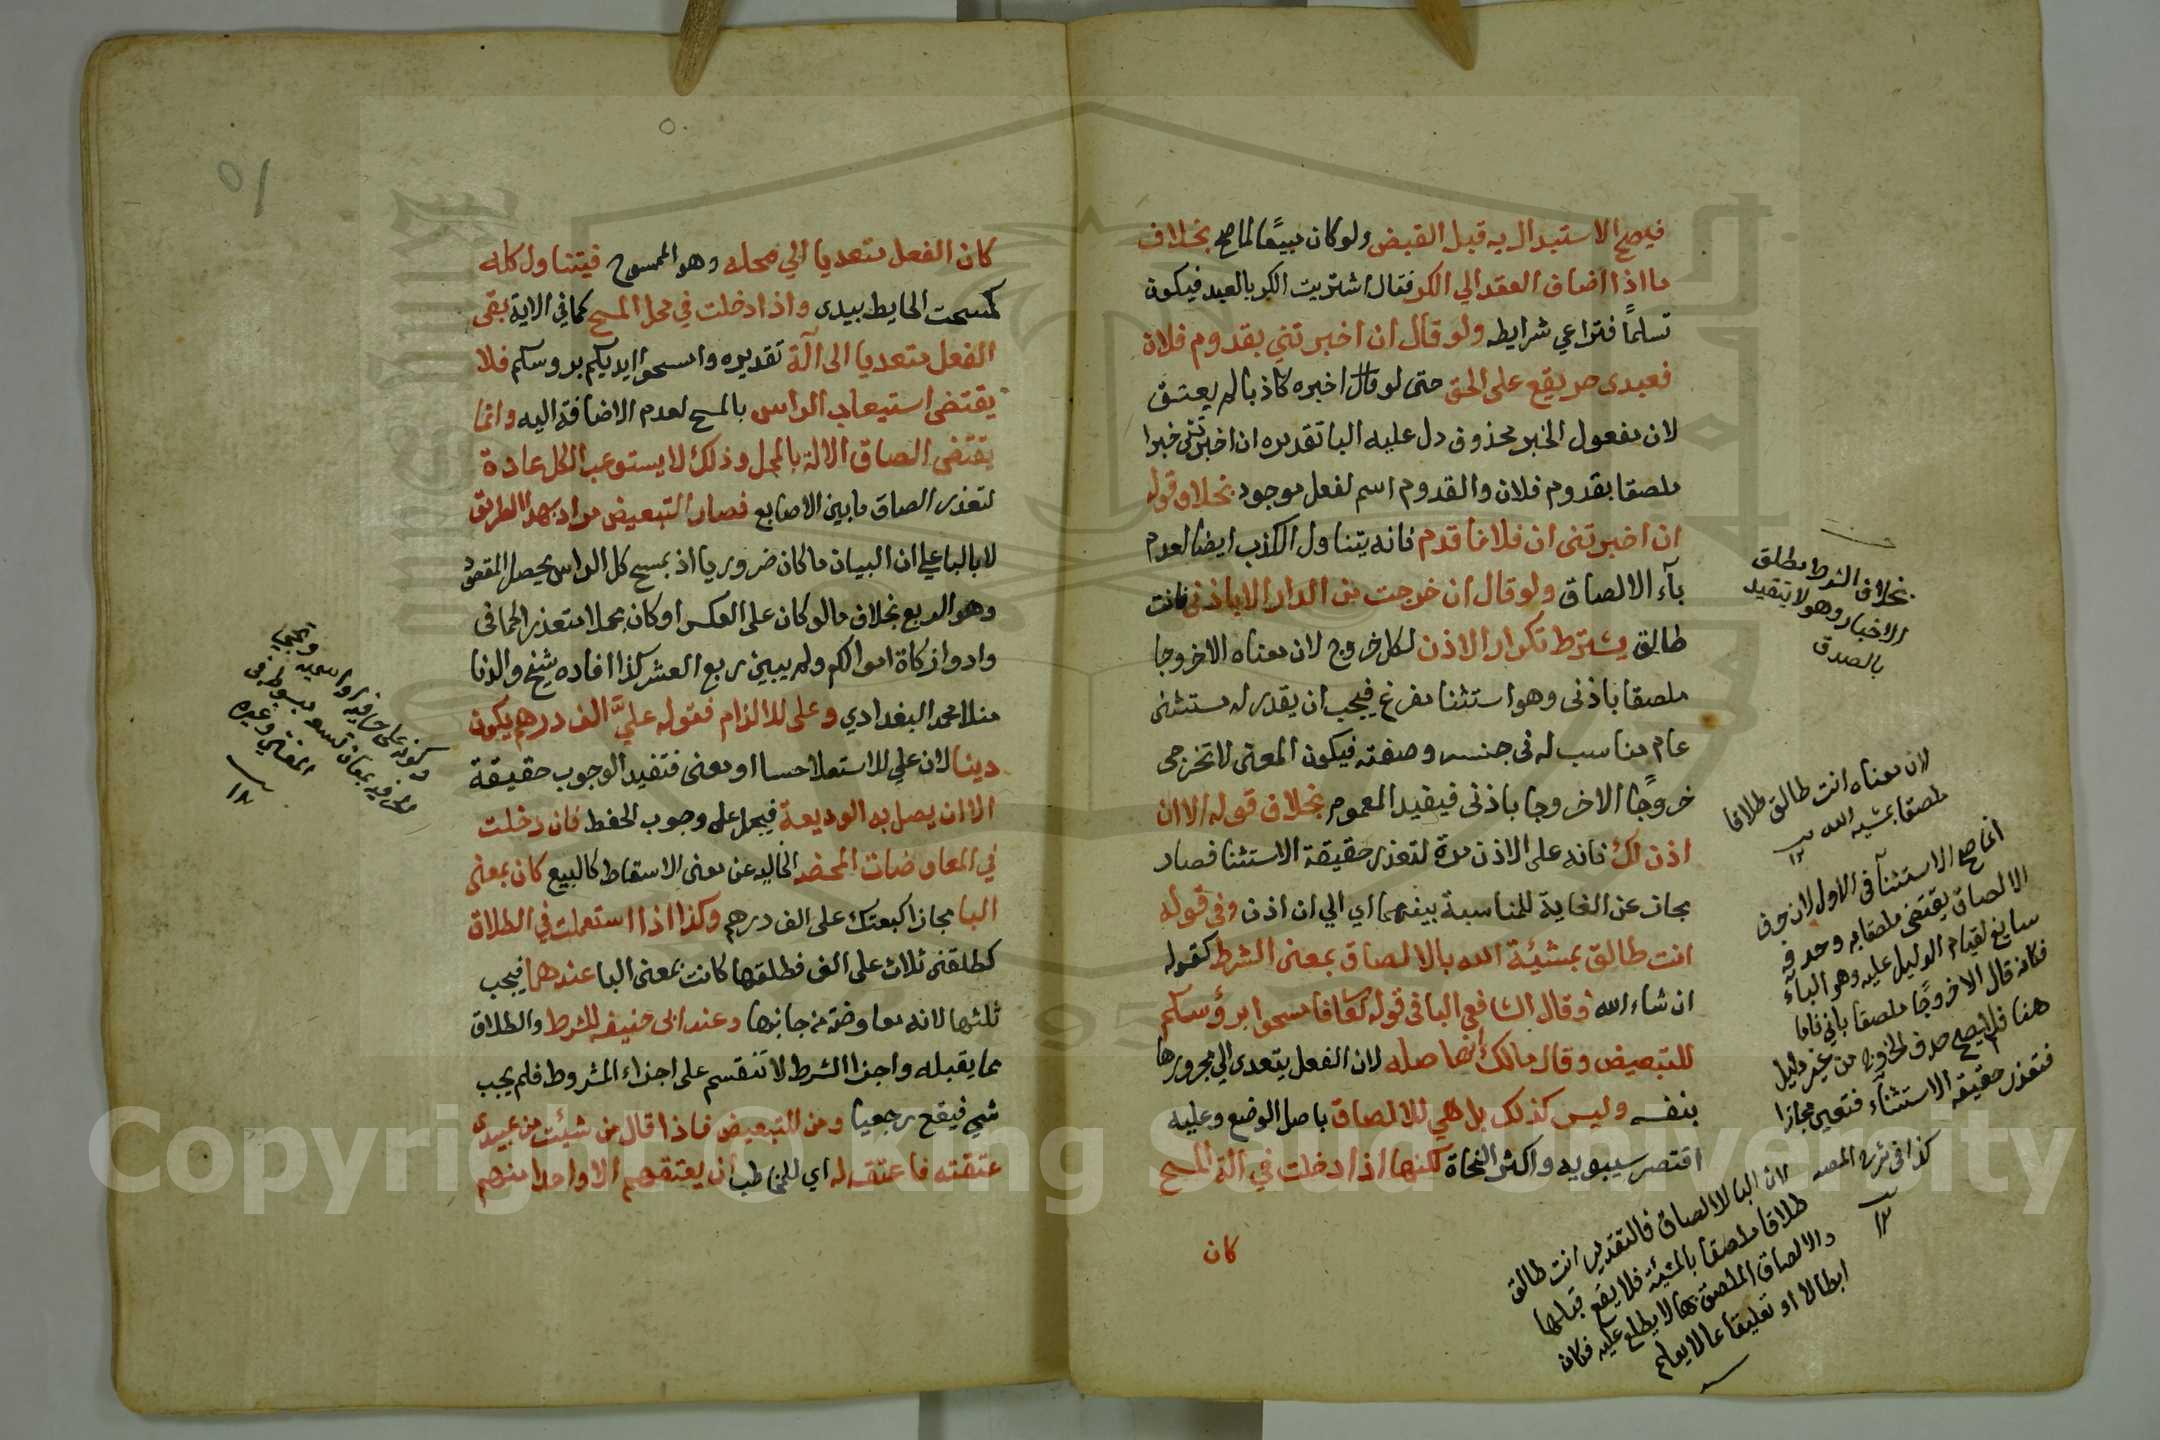 فيصح الاستبدال به قبل القبض ولو كان مبيعًا لما صح بخلاف
ما اذا اضاف العقد الي الكر فقال اشتريت الكر بالعبد فيكون
تسلمًا فتراعي شرايطه ولو قال ان اخبرتني بقدوم فلان
فعبدى حر يقع على الحق حتى لو قال اخبره كاذبا لم يعتق
لان مفعول الخبر محذوف دل عليه البا تقديره ان اخبرتنى خبرا
ملصقا بقدوم فلان والقدوم اسم لفعل موجود بخلاف قوله
ان اخبرتنى ان فلانا قدم فانه يتناول الكذب ايضا لعدم
بآء الالصاق ولو قال ان خرجت من الدار الا باذنى فانت
طالق يشترط تكرار الاذن لكل خروج لان معناه الاخروجا
ملصقا باذنى وهو استثنا مفرغ فيجب ان يقدر له مستثنى
عام مناسب له فى جنسه وصفته فيكون المعنى لا تخرجى
خروجًا الاخروجا باذنى فيفيد العموم بخلاف قوله الا ان
اذن لك فانه على الاذن مرة لتعذر حقيقة الاستثنا فصار
مجاز عن الغاية للمناسبة بينهما اي الي ان اذن وفى قوله
انت طالق بمشئية الله بالالصاق بمعنى الشرط كقوله
ان شاء الله وقال الشافعي البا فى قوله تعالى فامسحوا برؤسكم
للتبعيض وقال مالك انها صله لان الفعل يتعدى الي مجرورها
بنفسه وليس كذلك بل هي للالصاق باصل الوضع وعليه
اقتصر سيبويه واكثر النحاة لكنها اذا دخلت في الة المسح
كان
بخلاف الشرط مطلق
الاخبار وهو لا يتقيد
بالصدق
لان معناه انت طالق طلاقا
ملصقا بمشيه الله
١٢
انما صح الاستثنآ فى الاول لان حرف
الالصاق يقتضى ملصقا به وحذفه
سايغ لقيام الدليل عليه وهو البآء
فكانه قال الاخروجًا ملصقا باذني فاما
هنا فلا يصح حذف الخروج من غير دليل
فتعذر حقيقه الاستثنآء فتعين مجازا
كذا فى شرح المصـ
١٢
لان البا لالالصاق فالتقدير انت طالق
طلاقا ملصقا بالمشيئة فلا يقع قبلها
والالصاق الملصق بها لا يطلع عليه فكان
ابطالا او تعليقا عالا يعلم
٥١
كان الفعل متعديا الي محله وهو الممسوح فيتناول كله
كمسحت الحايط بيدى واذا دخلت في محل المسح كما في الاية بقى
الفعل متعديا الى آلة تقديره وامسحوا ايديكم بروسكم فلا
يقتضى استيعاب الراس بالمسح لعدم الاضافة اليه وانما
يقتضى الصاق الالة بالمحل وذلك لا يستوعب الكل عادة
لتعذر الصاق ما بين الاصابع فصار التبعيض مراد بهذا الطريق
لا بالبا علي ان البيان ما كان ضروريا اذ بمسح كل الراس يحصل المقصود
وهو الربع بخلاف ما لو كان على العكس او كان مجملا متعذر الحما فى
وادوا زكاة اموالكم ولم يبين ربع العشر كذا افاده شيخ والدنا
منلا محمد البغدادي وعلى للالزام فقوله عليَّ الف درهم يكون
دينا لان علي للاستعلا حسا او معنى فتفيد الوجوب حقيقة
الا ان يصل به الوديعة فيحمل على وجوب الحفظ فان دخلت
في المعاوضات المحضه الخاليه عن معنى الاسقاط كالبيع كان بمعنى
البا مجازا كبعتك على الف درهم وكذا اذا استعملت في الطلاق
كطلقنى ثلاث على الف فطلقها كانت بمعنى البا عندهما فيجب
ثلثها لانه معاوضة من جانبها وعند ابى حنيفه للشرط والطلاق
مما يقبله واجزا الشرط لا تنقسم على اجزاء المشروط فلم يجب
شي فيقع رجعيا ومن للتبعيض فاذا قال من شئت من عبيدى
عتقته فاعتقه له اي للمخاطب ان يعتقهم الا واحدا منهم
ويكون على حرفيه او اسميه
بمعان تسعه مبسوط فى
المغنى وغيره
١٢